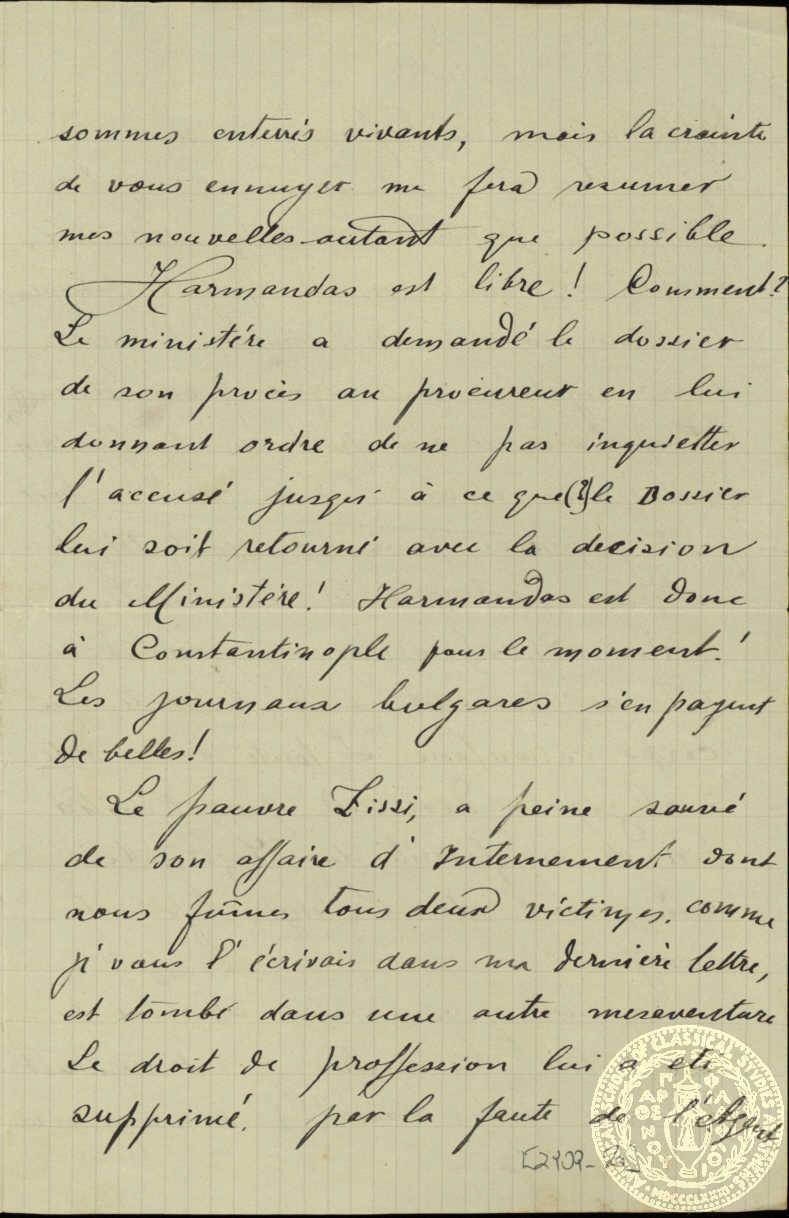 sommes enterrés vivants, mais la crainte
de vous ennuyer me fera resumer
mes nouvelles autant que possible.
Harmandas est libre! Comment?
Le ministére a demandé le dossier
de son procès au procureur en lui
donnant ordre de ne pas inquietter
l'accusé jusqu' à ce que (?) le Dossier
lui soit retourné avec la decision
du Ministére! Harmandas est donc
à Constantinople pour le moment!
Les journaux bulgares s'en payent
de belles!
Le pauvre Zissi, a peine sauvé
de son affaire d' Internement dont
nous fûmes tous deux victimes, comme
je vous l' écrivais dans ma derniére lettre,
est tombé dans une autre mesaventure
Le droit de proffession lui a eté
supprimé. par la faute de l'Agent